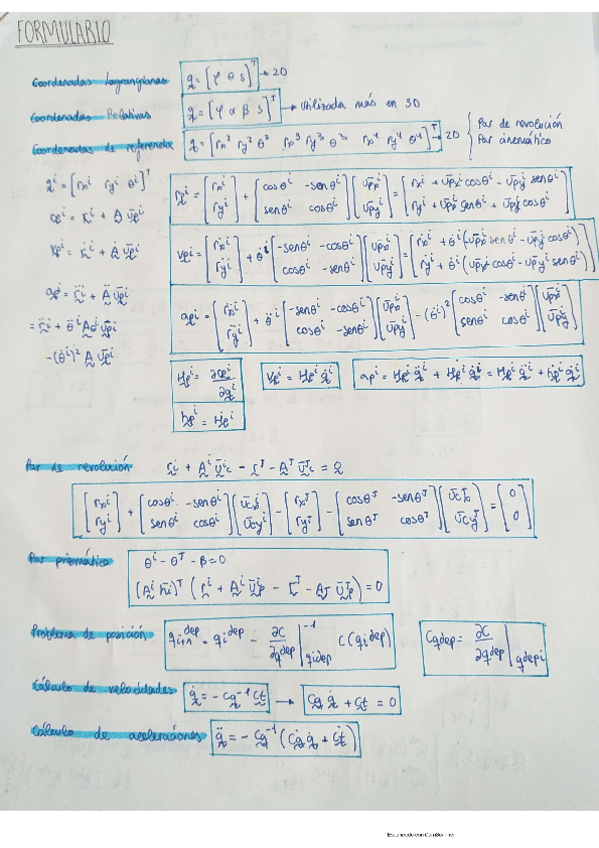 FORMULARIO
Coordenadas Lagrangianas q = [φ θ s]ᵀ → 2D
Coordenadas Relativas q = [φ α β s]ᵀ → Utilizada más en 3D
Coordenadas de referencia q = [rx² ry² θ² rx³ ry³ θ³ rx⁴ ry⁴ θ⁴]ᵀ → 2D { Par de revolución
Par cinemático
qⁱ = [rxⁱ ryⁱ θⁱ]ᵀ
rpⁱ = rⁱ + A ūpⁱ
[rxⁱ ryⁱ] + [cosθⁱ -senθⁱ; senθⁱ cosθⁱ][ūpxⁱ ūpyⁱ] = [rxⁱ + ūpxⁱ cosθⁱ - ūpyⁱ senθⁱ; ryⁱ + ūpxⁱ senθⁱ + ūpyⁱ cosθⁱ]
vpⁱ = ṙⁱ + Ȧ ūpⁱ
vpⁱ = [ṙxⁱ ṙyⁱ] + θ̇ⁱ [-senθⁱ -cosθⁱ; cosθⁱ -senθⁱ][ūpxⁱ ūpyⁱ] = [ṙxⁱ + θ̇ⁱ(-ūpxⁱ senθⁱ - ūpyⁱ cosθⁱ); ṙyⁱ + θ̇ⁱ(ūpxⁱ cosθⁱ - ūpyⁱ senθⁱ)]
apⁱ = r̈ⁱ + Ä ūpⁱ
= r̈ⁱ + θ̈ⁱ Aθⁱ ūpⁱ
-(θ̇ⁱ)² A ūpⁱ
apⁱ = [r̈xⁱ r̈yⁱ] + θ̈ⁱ [-senθⁱ -cosθⁱ; cosθⁱ -senθⁱ][ūpxⁱ ūpyⁱ] - (θ̇ⁱ)² [cosθⁱ -senθⁱ; senθⁱ cosθⁱ][ūpxⁱ ūpyⁱ]
Hpⁱ = ∂rpⁱ/∂qⁱ vpⁱ = Hpⁱ q̇ⁱ apⁱ = Hpⁱ q̈ⁱ + Ḣpⁱ q̇ⁱ = Hpⁱ q̈ⁱ + hpⁱ q̇ⁱ
hpⁱ = Ḣpⁱ
Par de revolución rⁱ + Aⁱ ūⁱc - rᴶ - Aᴶ ūᴶc = 0
[rxⁱ ryⁱ] + [cosθⁱ -senθⁱ; senθⁱ cosθⁱ][ūcxⁱ ūcyⁱ] - [rxᴶ ryᴶ] - [cosθᴶ -senθᴶ; senθᴶ cosθᴶ][ūcxᴶ ūcyᴶ] = [0 0]
Par prismático θⁱ - θᴶ - β = 0
(Aⁱ h̄ⁱ)ᵀ (rⁱ + Aⁱ ūⁱp - rᴶ - Aᴶ ūᴶp) = 0
Problema de posición qᵢ₊₁ᵈᵉᵖ = qᵢᵈᵉᵖ - ∂C/∂qᵈᵉᵖ |⁻¹ qᵢᵈᵉᵖ C(qᵢᵈᵉᵖ) Cqdep = ∂C/∂qᵈᵉᵖ | qdepi
Cálculo de velocidades q̇ = -Cq⁻¹ Ct → Cq q̇ + Ct = 0
Cálculo de aceleraciones q̈ = -Cq⁻¹ (Ċq q̇ + Ċt)
Escaneado con CamScanner